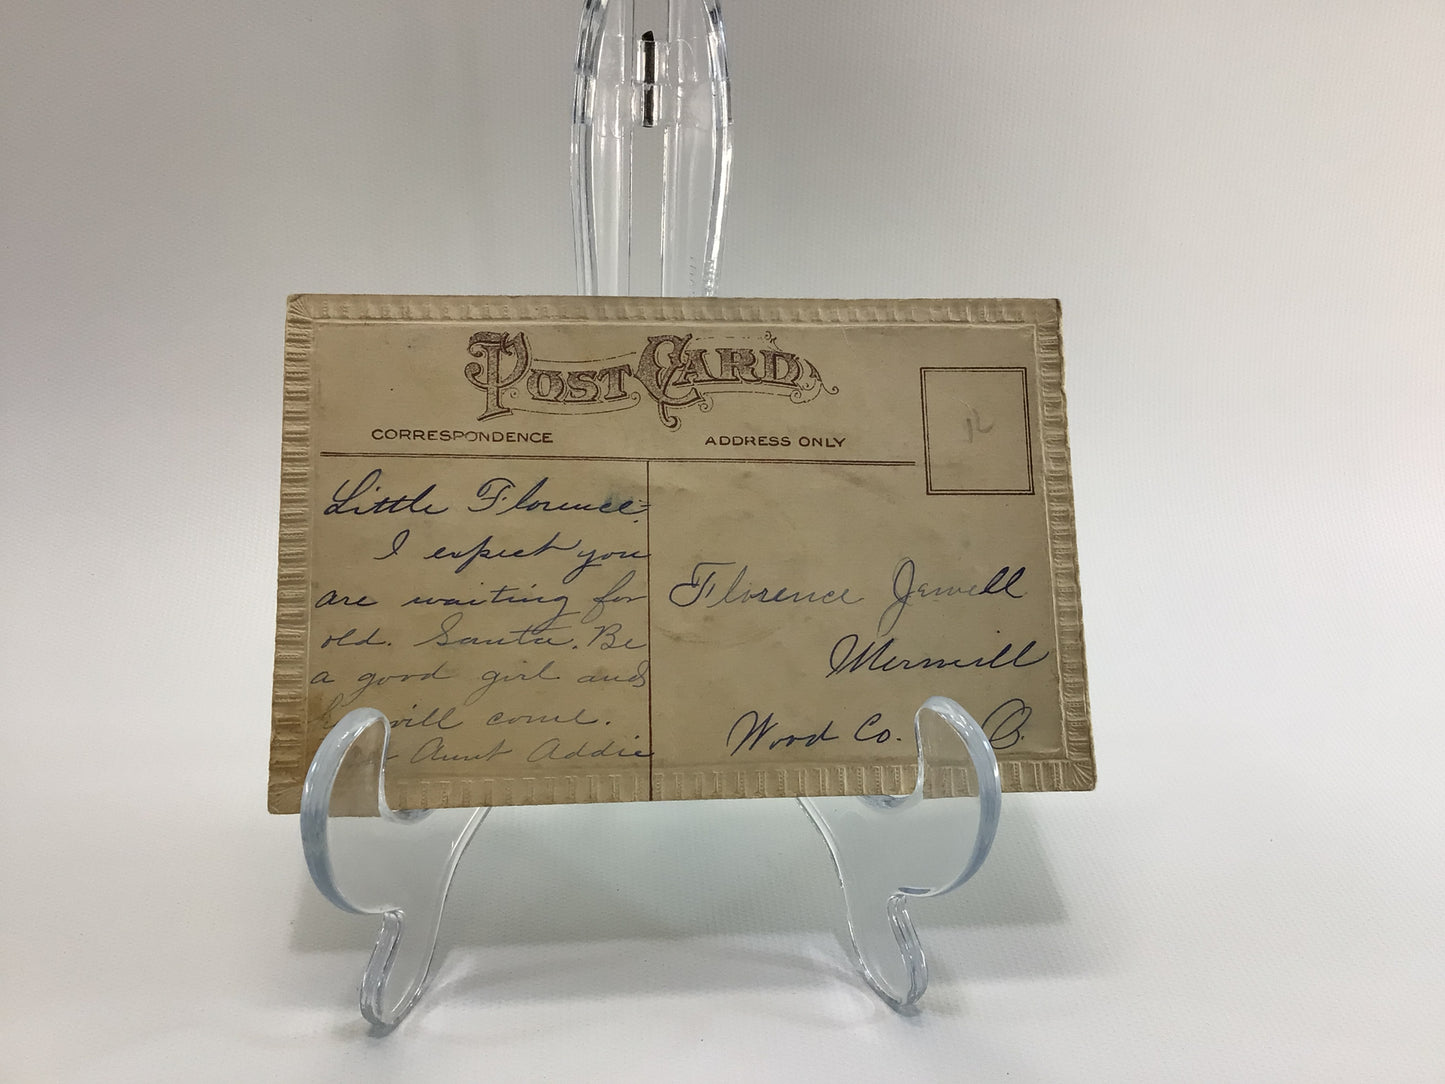 POST CARD
CORRESPONDENCE
ADDRESS ONLY
Little Florence:
I expect you
are waiting for
old. Santa. Be
a good girl and
will come.
Aunt Addie
Florence Jewell
Merrill
Wood Co. O.